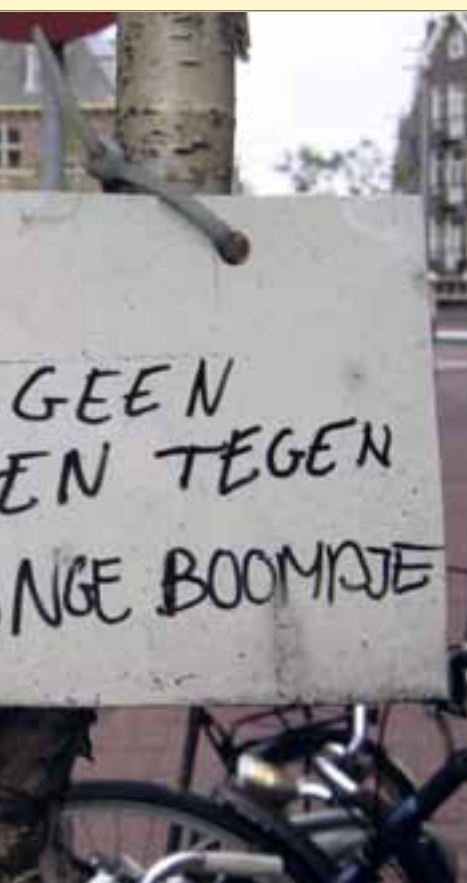 GEEN
EN TEGEN
NGE BOOMPJE